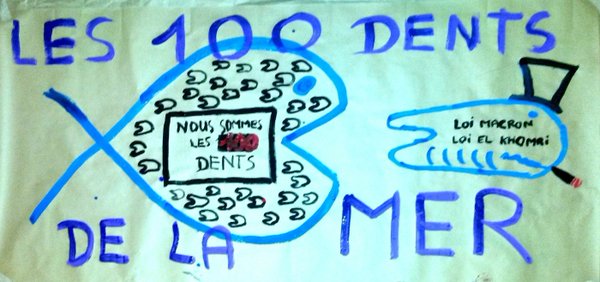 LES 100 DENTS
NOUS SOMMES
LES
DENTS
LOI MACRON
LOI EL KHOMRI
DE LA MER